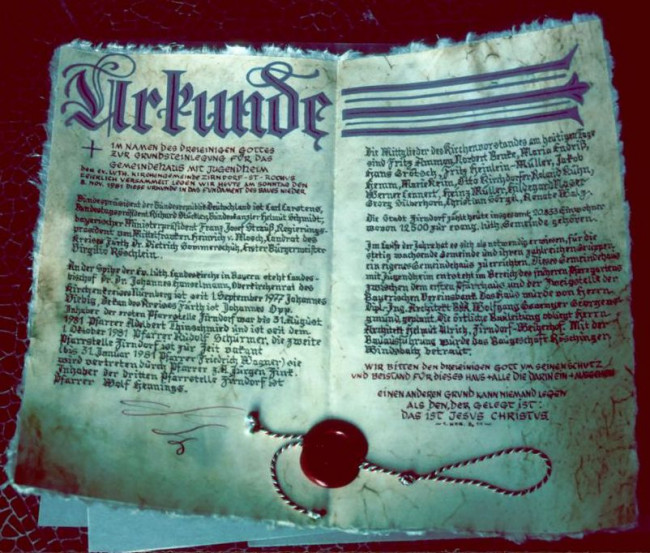 Urkunde
IM NAMEN DES DREIEINIGEN GOTTES
ZUR GRUNDSTEINLEGUNG FÜR DAS
GEMEINDEHAUS MIT JUGENDHEIM
DER EV. LUTH. KIRCHENGEMEINDE ZIRNDORF - ST. ROCHUS
FEIERLICH VERSAMMELT LEGEN WIR HEUTE AM SONNTAG DEN
8. NOV. 1981 DIESE URKUNDE IN DAS FUNDAMENT DES BAUES NIEDER.
Bundespräsident der Bundesrepublik Deutschland ist Carl Carstens,
Bundestagspräsident Richard Stücklen, Bundeskanzler Helmut Schmidt,
bayerischer Ministerpräsident Franz Josef Strauß, Regierungs-
präsident von Mittelfranken Heinrich v. Mosch, Landrat des
Kreises Fürth Dr. Dietrich Sommerschuh, Erster Bürgermeister
Virgilio Röschlein.
An der Spitze der Ev. luth. Landeskirche in Bayern steht Landes-
bischof Dr. Dr. Johannes Hanselmann, Oberkirchenrat des
Kirchenkreises Nürnberg ist seit 1. September 1977 Johannes
Viebig, Dekan des Kreises Fürth ist Johannes Opp.
Inhaber der ersten Pfarrstelle Zirndorf war bis 31. August
1981 Pfarrer Adelbert und ist seit dem
1. Oktober 1981 Pfarrer Rudolf Schürmer, die zweite
Pfarrstelle Zirndorf ist zur Zeit vakant
(bis 31. Januar 1981 Pfarrer Friedrich Wagner) sie
wird vertreten durch Pfarrer z.A. Jürgen
Inhaber der dritten Pfarrstelle Zirndorf ist
Pfarrer Wolf Hennings.
Die Mitglieder des Kirchenvorstandes am heutigen Tage
sind Fritz Ammon, Norbert Maria Endriß,
Hans Fritz Heinlein-Müller, Jakob
Hemm, Marie Kein, Otto Roland Kühn,
Werner Tanner, Franz Müller, Hildegard
Georg Christian Renate
Die Stadt Zirndorf zählt heute insgesamt 20.833 Einwohner
wovon 12.500 zur evang. luth. Gemeinde gehören.
Im Laufe der Jahre hat es sich als notwendig erwiesen, für die
stetig wachsende Gemeinde und ihren zahlreichen Gruppen
ein eigenes Gemeindehaus zu errichten. Dieses Gemeindehaus
mit Jugendheim entsteht im Bereich des früheren Pfarrgartens
zwischen dem ersten Pfarrhaus und der Zweigstelle der
Bayerischen Vereinsbank. Das Haus wurde von Herrn
Dipl. Ing. Architekt Wolfgang
geplant. Die örtliche Bauleitung obliegt Herrn
Architekt Helmut Ulrich, Zirndorf-Weiherhof. Mit der
Bauausführung wurde das Baugeschäft
Windsbach betraut.
WIR BITTEN DEN DREIEINIGEN GOTT UM SEINEN SCHUTZ
UND BEISTAND FÜR DIESES HAUS + ALLE DIE DARIN EIN + AUSGEHEN
EINEN ANDEREN GRUND KANN NIEMAND LEGEN
ALS DEN, DER GELEGT IST:
DAS IST JESUS CHRISTUS.
~ 1. KOR. 3, 11 ~